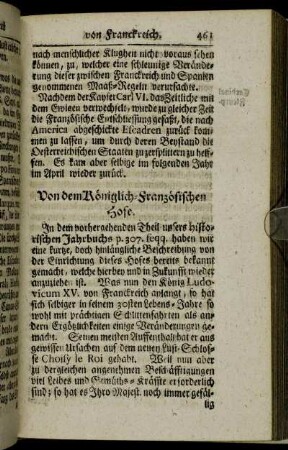 von Franckreich. 461
nach menschlicher Klugheit nicht voraus sehen
können, zu, welcher eine schleunige Verände-
rung dieser zwischen Franckreich und Spanien
genommenen Maaß-Regeln verursachte.
Nachdem der Kayser Carl VI. das Zeitliche mit
dem Ewigen verwechselt, wurde zu gleicher Zeit
die Französische Entschliessung gefaßt, die nach
America abgeschickte Escadren zurück kom-
men zu lassen, um durch deren Beystand die
Oesterreichischen Staaten zu zersplittern zu helf-
fen. Es kam aber selbige im folgenden Jahr
im April wieder zurück.
Von dem Königlich-Französischen
Hofe.
In dem vorhergehenden Theil unsers histo-
rischen Jahrbuchs p. 307. seqq. haben wir
eine kurtze, doch hinlängliche Beschreibung von
der Einrichtung dieses Hofes bereits bekannt
gemacht, welche hierbey und in Zukunft wieder
anzuziehen ist. Was nun den König Ludo-
vicum XV. von Franckreich anlangt, so hat
sich selbiger in seinem 30sten Lebens-Jahre so
wohl mit prächtigen Schlittenfahrten als an-
dern Ergötzlichkeiten einige Veränderungen ge-
macht. Seinen meisten Auffenthalt hat er aus
gewissen Ursachen auf dem neuen Lust-Schlos-
se Choisy le Roi gehabt. Weil nun aber
zu dergleichen angenehmen Beschäfftigungen
viel Leibes und Gemüths-Kräffte erforderlich
sind; so hat es Ihro Majest. noch immer gefäl-
lig